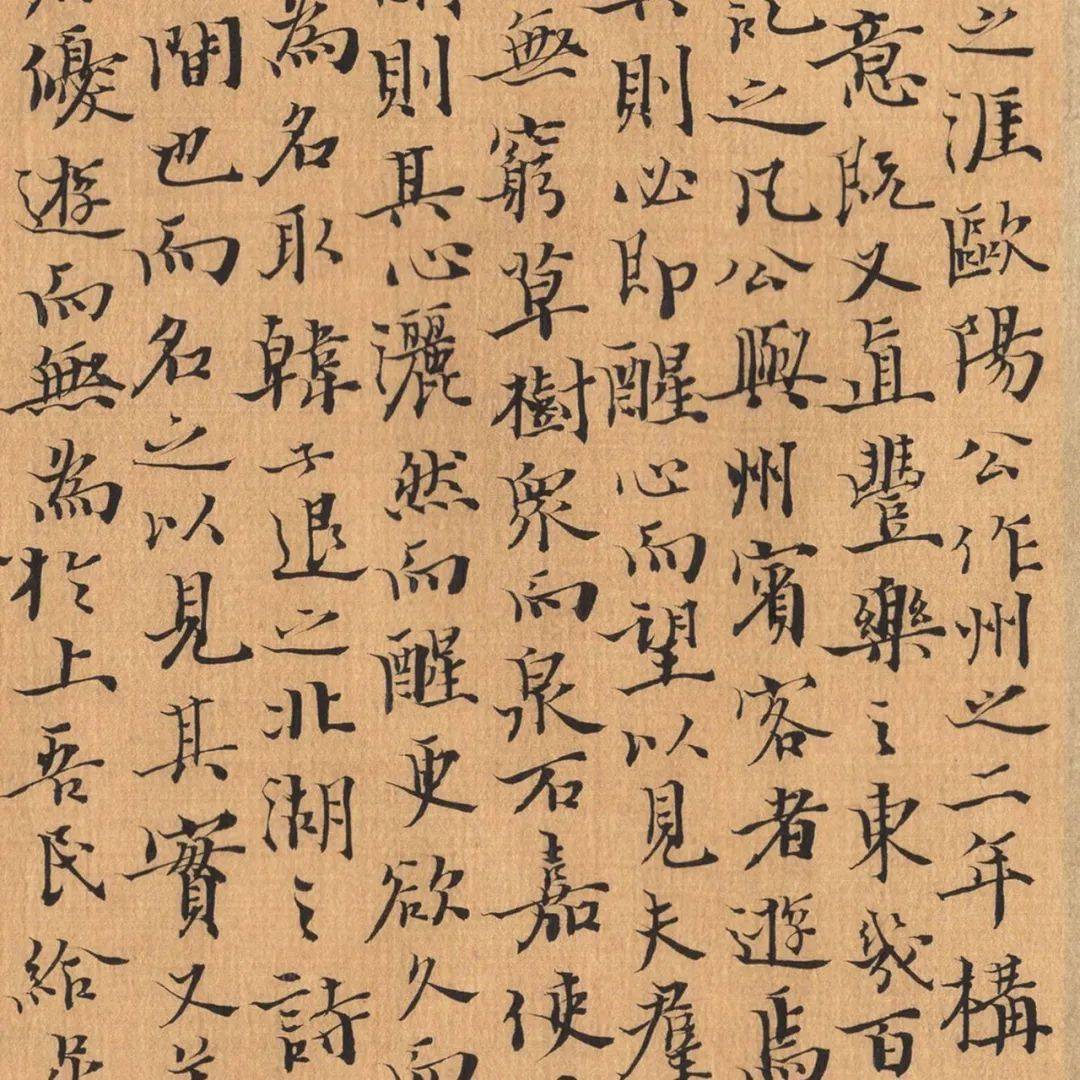 之涯歐陽公作州之二年構
意既又直豐樂之東幾百
記之凡公與州賓客者遊焉
則必即醒心而望以見夫羣
無窮草樹衆而泉石嘉使
則其心灑然而醒更欲久而
為名取韓子退之北湖之詩
間也而名之以見其實又
優遊而無為於上吾民給